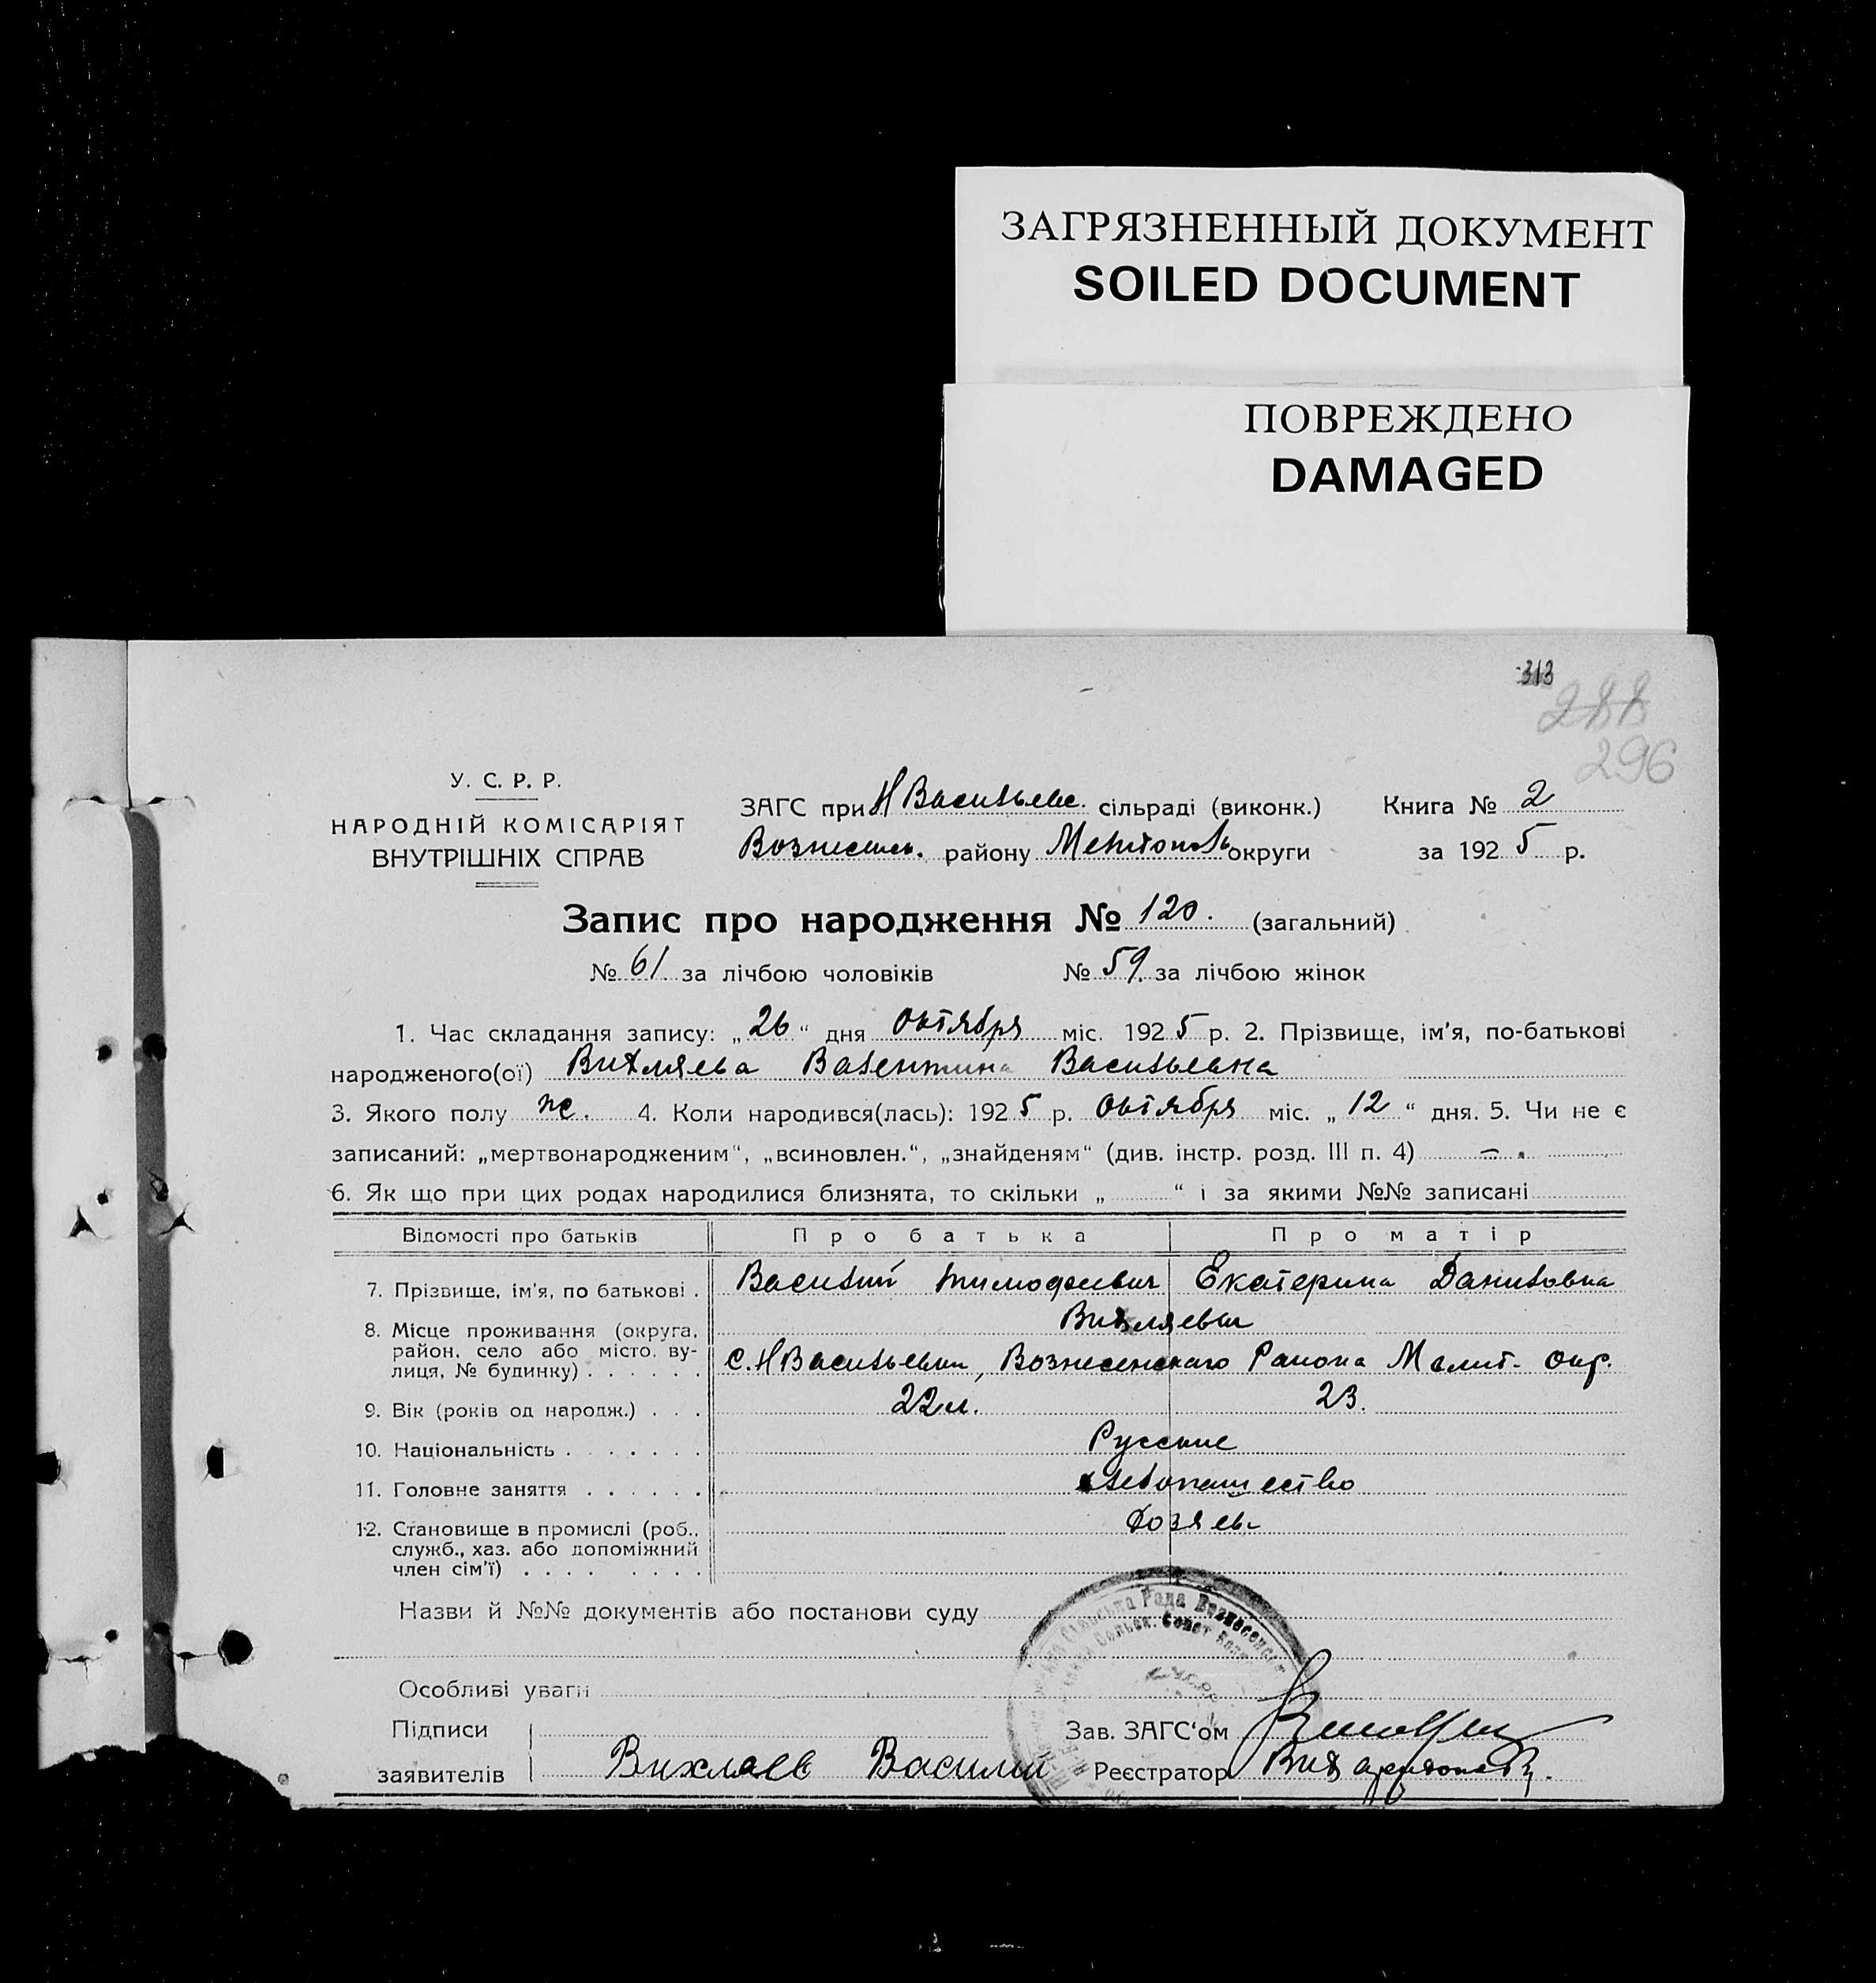 ЗАГРЯЗНЕННЫЙ ДОКУМЕНТ
SOILED DOCUMENT
ПОВРЕЖДЕНО
DAMAGED
313
288
296
У. С. Р. Р.
НАРОДНІЙ КОМІСАРІЯТ
ВНУТРІШНІХ СПРАВ
ЗАГС при Н Васильевс. сільраді (виконк.) Книга № 2
Вознесенс. району Мелитополь округи за 1925 р.
Запис про народження № 120. (загальний)
№ 61 за лічбою чоловіків № 59. за лічбою жінок
1. Час складання запису: „26“ дня Октября міс. 1925 р. 2. Прізвище, ім'я, по-батькові
народженого(ої) Вихляева Валентина Васильевна
3. Якого полу же. 4. Коли народився(лась): 1925 р. Октября міс. „12“ дня. 5. Чи не є
записаний: „мертвонародженим“, „всиновлен.“, „знайденям“ (див. інстр. розд. III п. 4) — .
6. Як що при цих родах народилися близнята, то скільки „ “ і за якими №№ записані
Відомості про батьків Про батька Про матір
7. Прізвище, ім'я, по батькові . Василий Тимофеевич Екатерина Даниловна
Вихляевы
8. Місце проживання (округа, район, село або місто, ву-
лиця, № будинку) . . . . . . С. Н Васильевки, Вознесенскаго Района Мелит. окр.
9. Вік (років од народж.) . . . 22 л. 23.
10. Національність . . . . . . . Русские
11. Головне заняття . . . . . . хлебопашество
12. Становище в промислі (роб., Хозяева
служб., хаз. або допоміжний
член сім'ї) . . . . . . . .
Назви й №№ документів або постанови суду
Особливі уваги
Підписи Зав. ЗАГС'ом
заявителів Вихляев Василий Реєстратор
Сільська Рада Вознесенськ
Сельск. Совет